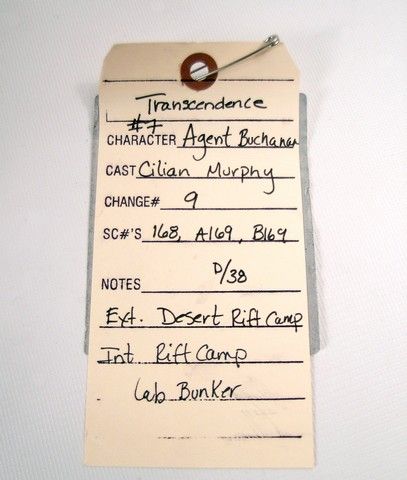 Transcendence
#7
CHARACTER Agent Buchanan
CAST Cilian Murphy
CHANGE# 9
SC#'S 168, A169, B169
D/38
NOTES
Ext. Desert Rift Camp
Int Rift Camp
Lab Bunker